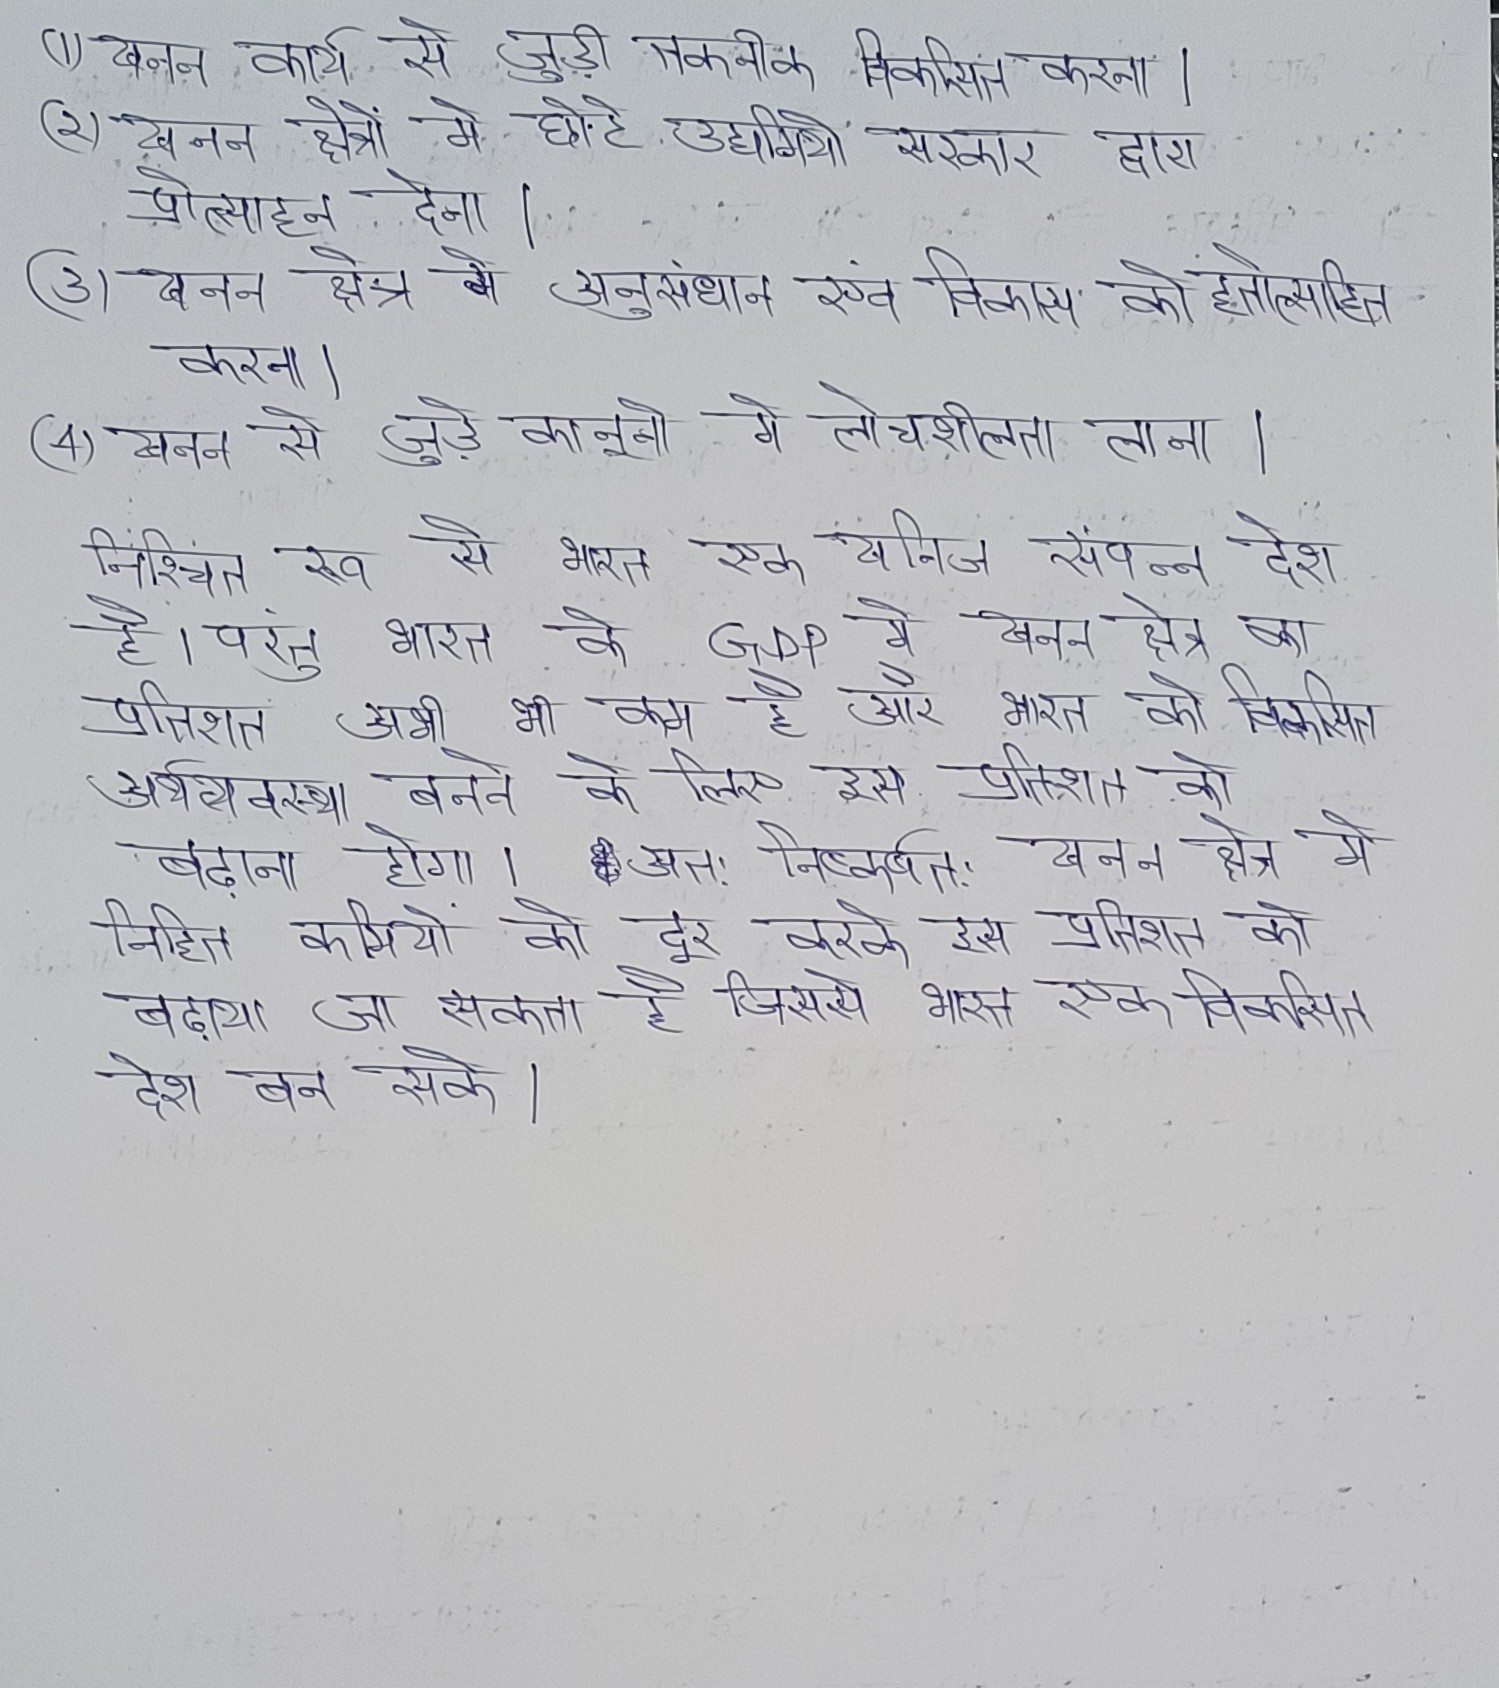 (1) खनन कार्य से जुड़ी तकनीक विकसित करना।
(2) खनन क्षेत्रों मे छोटे उद्यमियों सरकार द्वारा
प्रोत्साहन देना।
(3) खनन क्षेत्र मे अनुसंधान एंव विकास को हतोत्साहित
करना।
(4) खनन से जुड़े कानूनो मे लोचशीलता लाना।
निश्चित रुप से भारत एक खनिज संपन्न देश
है। परंतु भारत के GDP मे खनन क्षेत्र का
प्रतिशत अभी भी कम है और भारत को विकसित
अर्थव्यवस्था बनने के लिए इस प्रतिशत को
बढ़ाना होगा। अतः निष्कर्षतः खनन क्षेत्र मे
निहित कमियों को दूर करके इस प्रतिशत को
बढ़ाया जा सकता है जिससे भारत एक विकसित
देश बन सके।